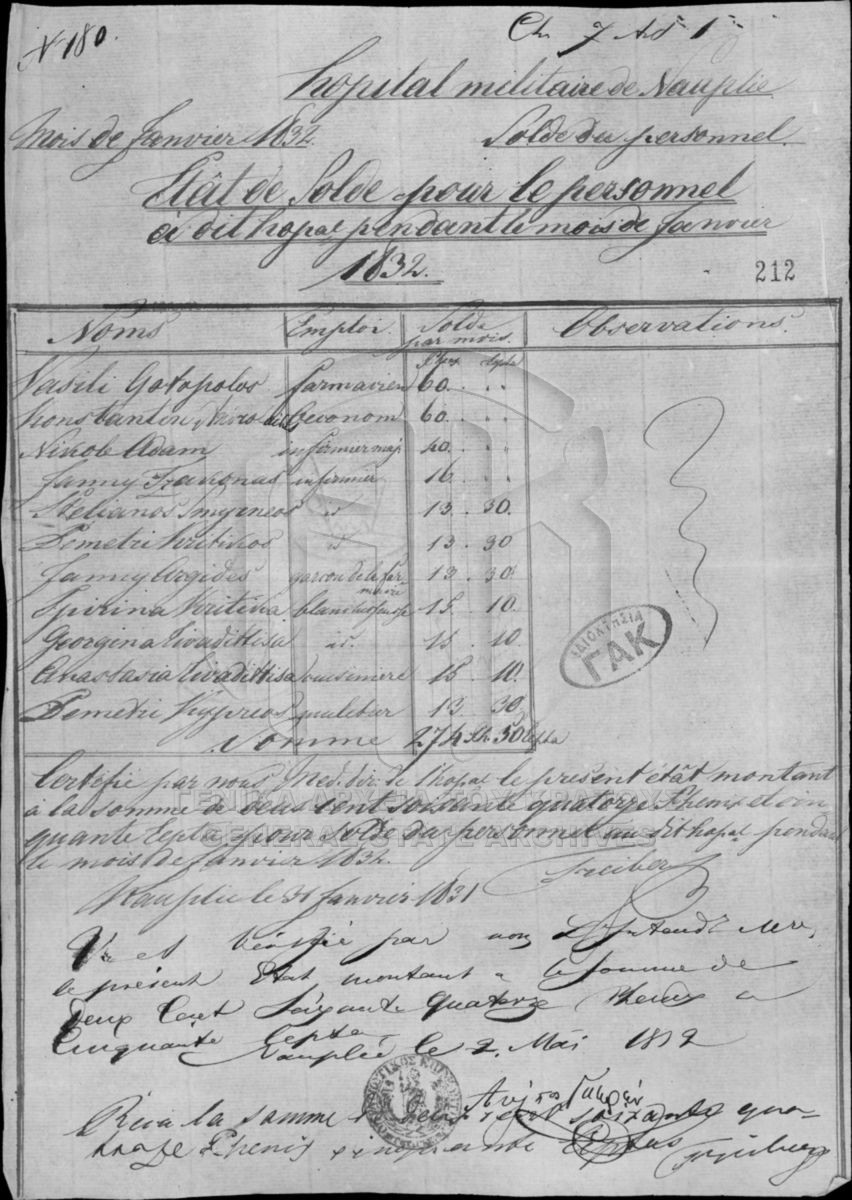 N 180.
Ch 7 Art 1
hopital militaire de Nauplie
Mois de Janvier 1832.
Solde du personnel.
Etât de Solde pour le personnel
à dit hopal pendant le mois de Janvier
1832.
212
Noms Emploi. Solde par mois. Observations.
Phenx lepta
Vasili Gatopolos farmacien 60. . .
Konstantin Oeconom 60. . .
Nikole Adam infirmier maj 40. . .
Janny Fravonas infirmier 16. . .
Stelianos Smyrneos id 13. 30.
Demetri Kritikos id 13. 30
Janny Argides garcon de la farmacie 13. 30
Spirina Kritika blanchisseuse 15. 10.
Georgina Livadittisa id. 15. 10.
Anastasia Livadittisa cuisiniere 15. 10
Demetri Kypreos 13. 30.
Somme 274 Ph. 50 lepta
ΙΔΙΟΚΤΗΣΙΑ
ΓΑΚ
ΓΕΝΙΚΑ ΑΡΧΕΙΑ ΤΟΥ ΚΡΑΤΟΥΣ
GENERAL STATE ARCHIVES
Certifié par nous Med. dir. de l'hopal le present étât montant
à la somme de deus cent soisante quatorze Phenix et cin
quante lepta pour solde du personnel au dit hopal pendant
le mois de Janvier 1832.
Nauplie le 31 Janvier 1831
Treiber
Vu et vérifié par nous
le présent Etat montant à la somme de
Deux Cent Soixante Quatorze Phenix et
Cinquante lepta
Nauplie le 2. Mai 1832
Reçu la somme de deux cent soixante qua-
torze Phenix cinquante leptas